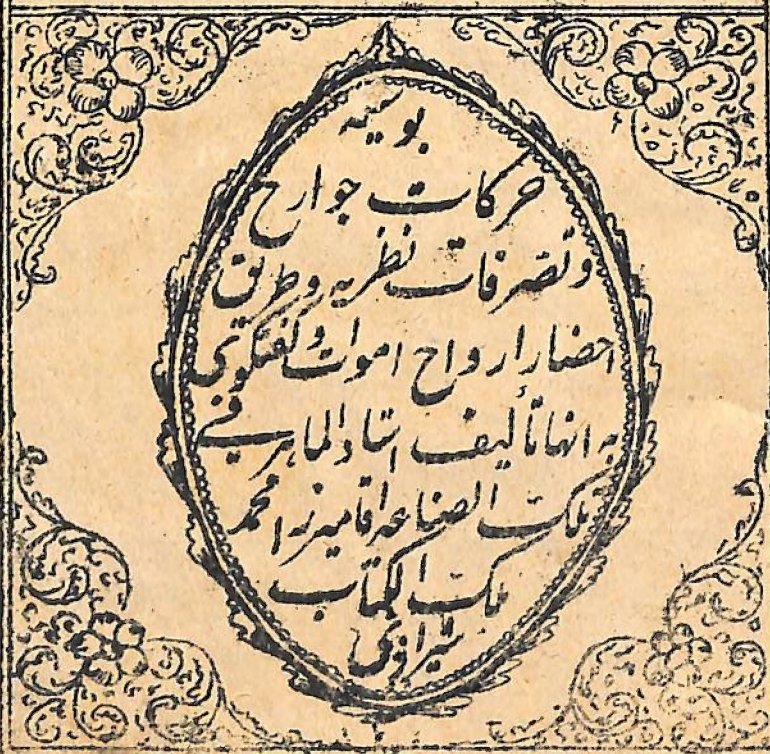 بوسیه
حرکات جوارح
و تصرفات نظریه و طریق
احضار ارواح اموات و گفتگوی
به انها تألیف استاد الماهر فی
تلک الصناعه اقا میرزا محمد
ملک الکتاب
شیرازی